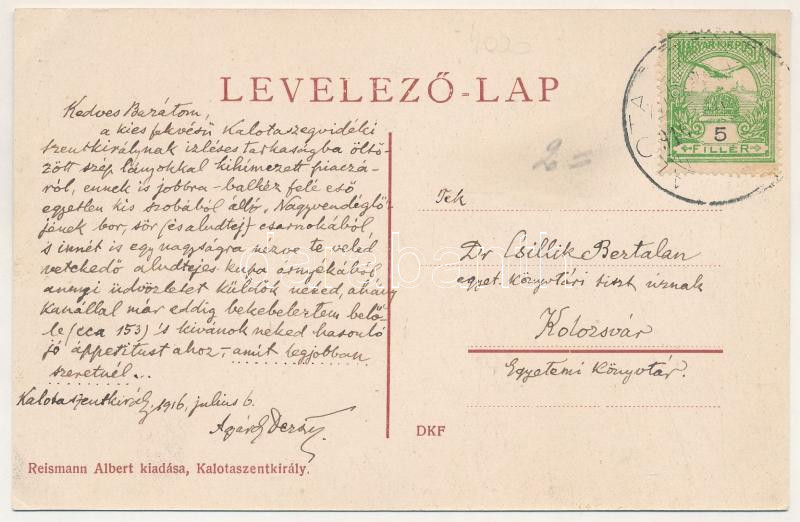 4020
LEVELEZŐ-LAP
MAGYAR KIR. POSTA
5
FILLÉR
2=
Kedves Barátom,
a kies fekvésű Kalotaszegvidéki
szentkirálynak izléses tarkaságba öltö-
zött szép lányokkal kihimezett piaczá-
ról, ennek is jobbra-balkéz felé eső
egyetlen kis szobából álló "Nagyvendéglő"-
jének bor, sör (és aludtej) csarnokából,
s innét is egy nagyságra nézve te veled
vetekedő aludtejes-kupa árnyékából,
annyi üdvözletet küldök néked, ahány
kanállal már eddig bekebeleztem belő-
le (cca 153) 's kivánok néked hasonló
jó áppetitust ahoz, - amit legjobban
szeretnél...
Kalotaszentkirály, 1916. július 6.
Tek
Dr Csillik Bertalan
egyet. Könyvtári tiszt úrnak
Kolozsvár
Egyetemi Könyvtár.
DKF
Reismann Albert kiadása, Kalotaszentkirály.
darabanth